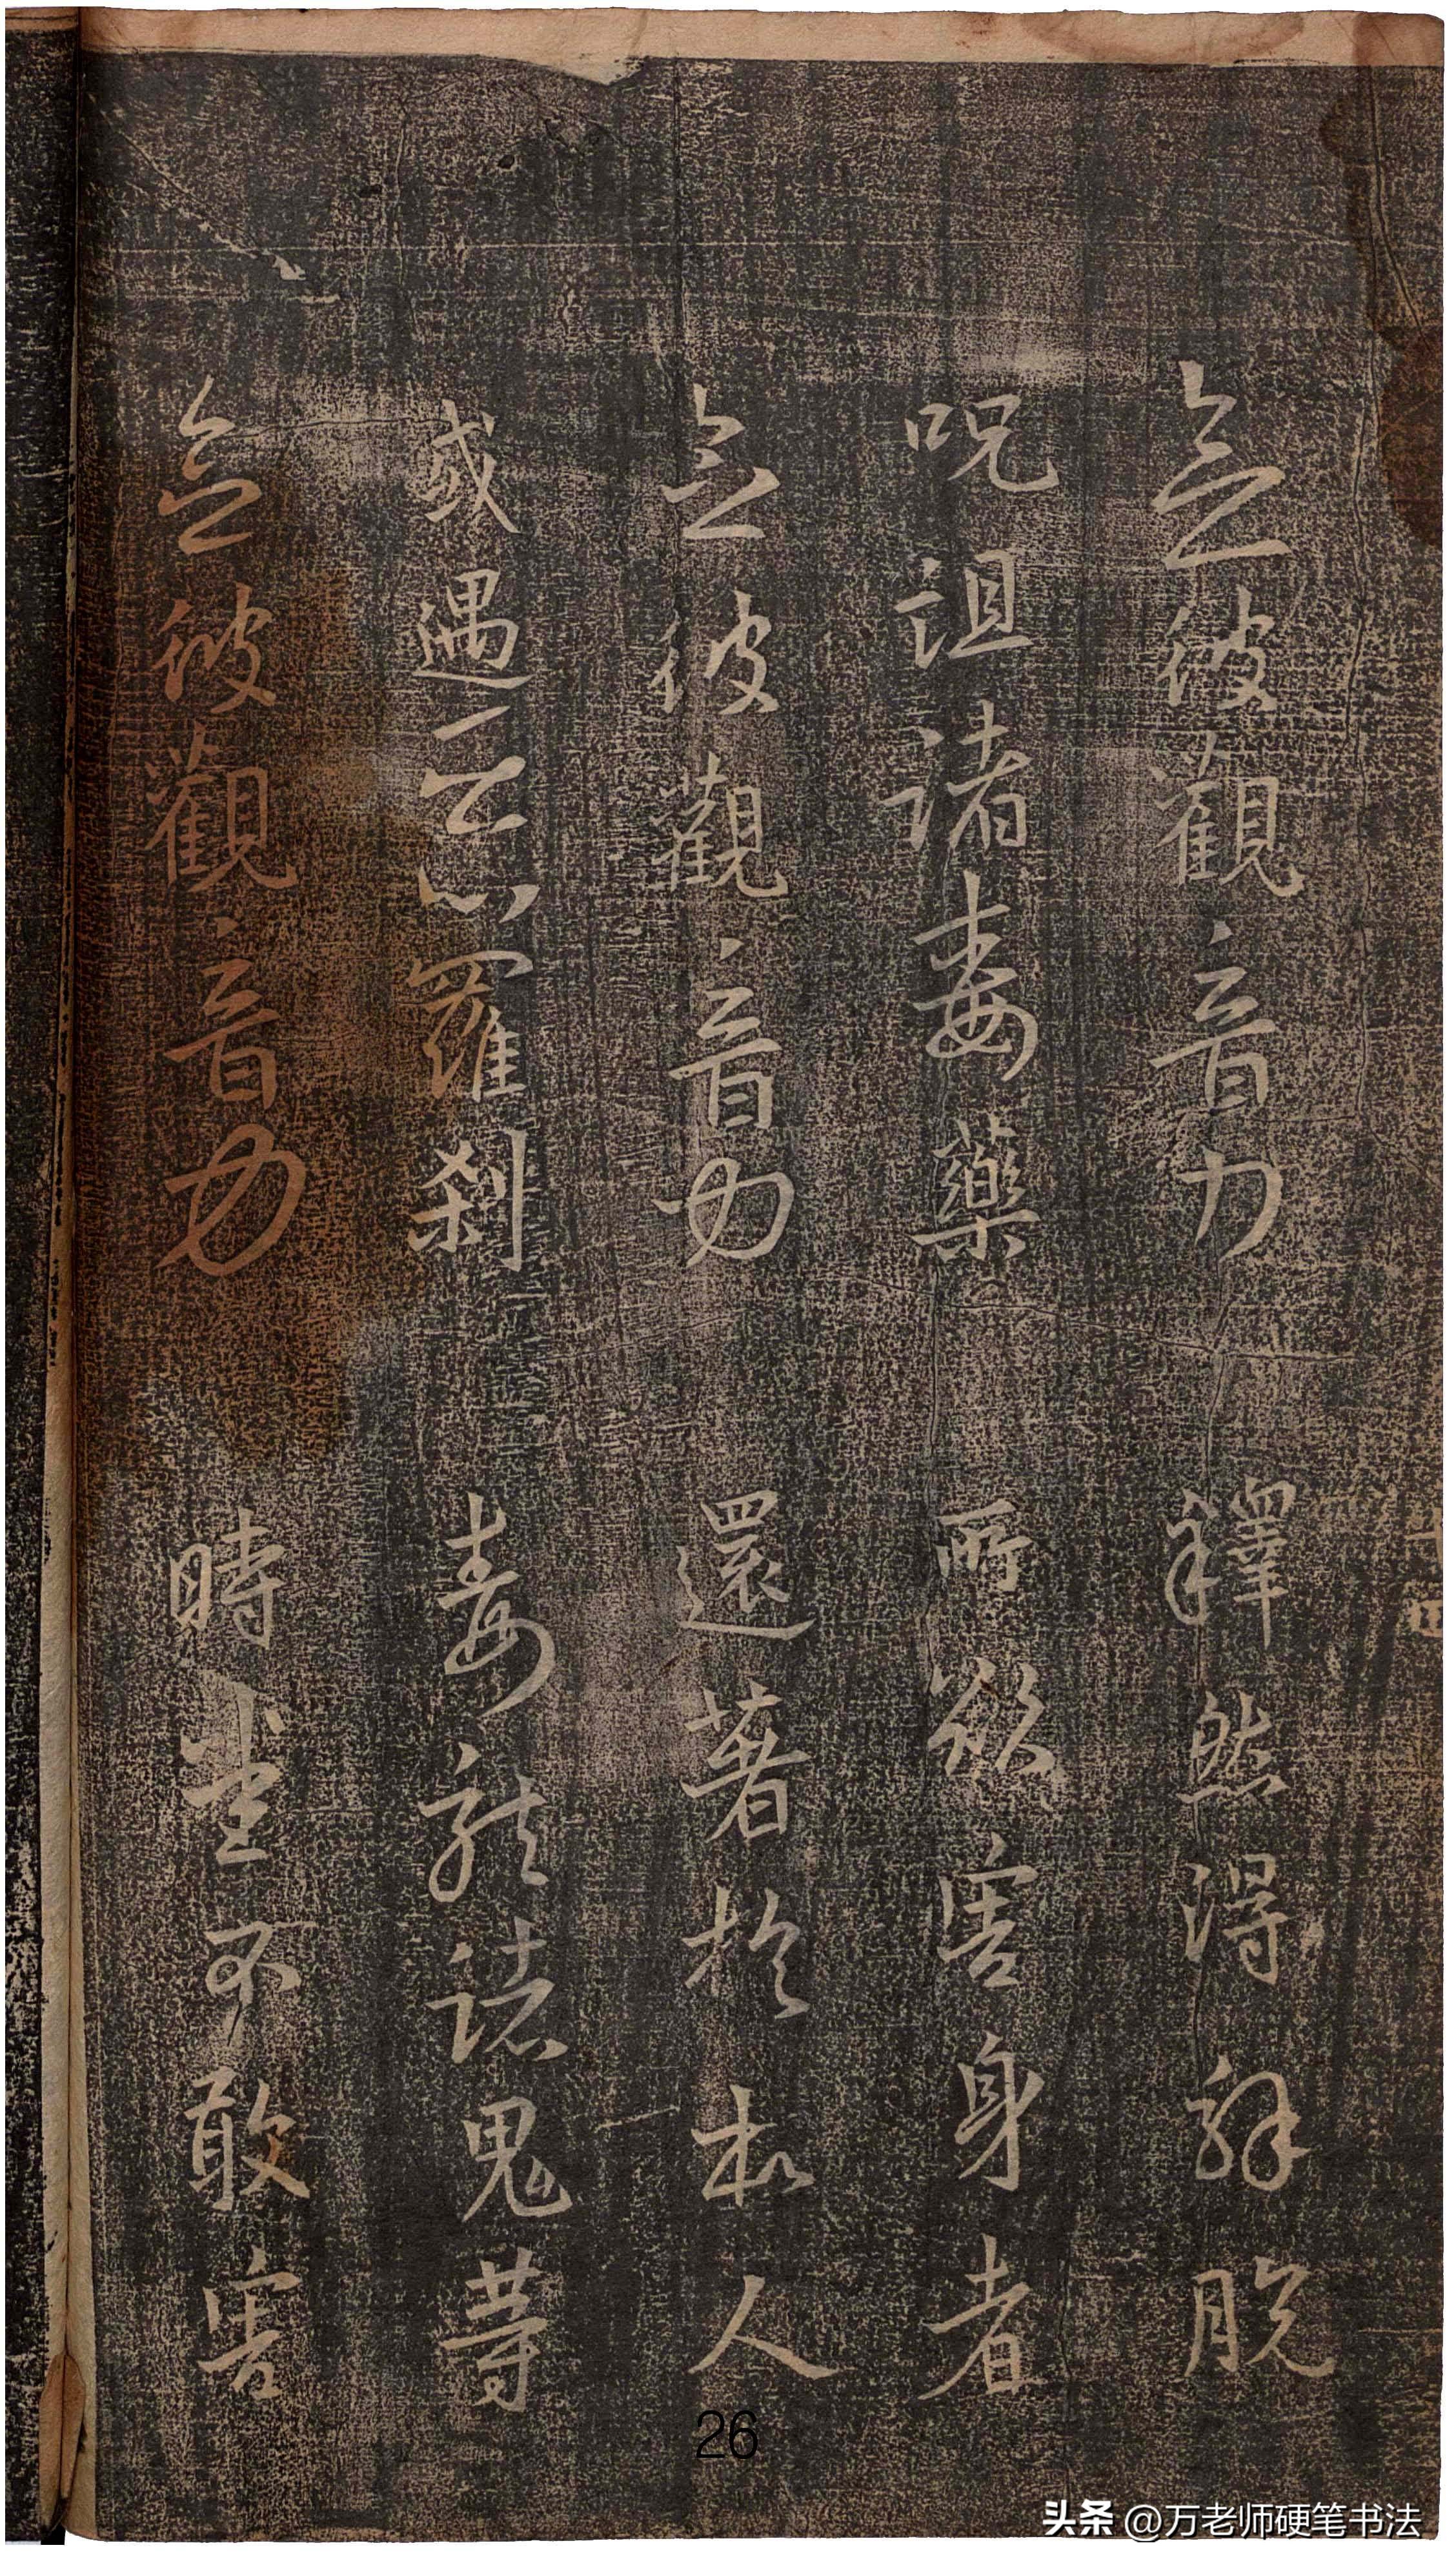 念彼觀音力 釋然得解脫
呪詛諸毒藥 所欲害身者
念彼觀音力 還著於本人
或遇惡羅刹 毒龍諸鬼等
念彼觀音力 時悉不敢害
26
头条 @万老师硬笔书法